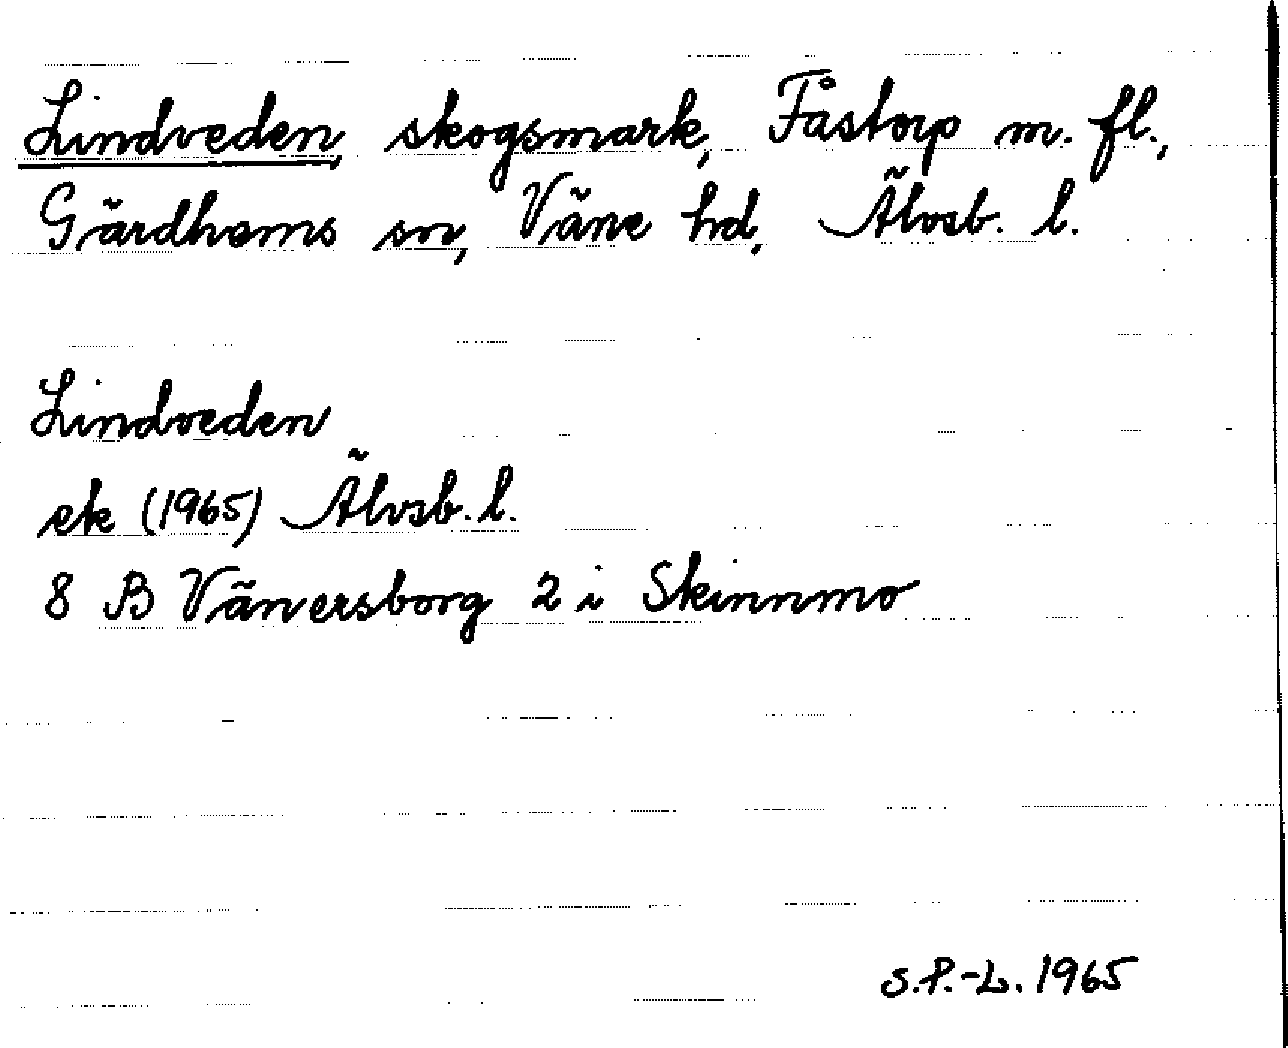 Lindveden, skogsmark, Fåstorp m. fl.,
Gärdhems sn, Väne hd, Älvsb. l.
Lindveden
ek (1965) Älvsb. l.
8 B Vänersborg 2 i Skinnmo
S.P.-L. 1965